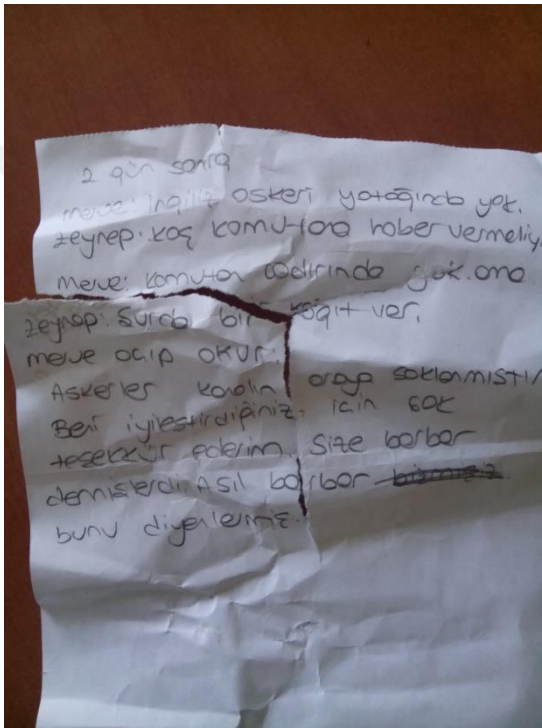 2 gün sonra
merve: İngiliz askeri yatağında yok.
zeynep: Koş komutana haber vermeliy
merve: Komutan çadırında yok. ama
zeynep: Şurda bir kağıt var.
merve açıp okur:
Askerler karalın araya saklanmıştır
Beni iyileştirdiğiniz için çok
teşekkür ederim. Size barbar
demişlerdi. Asıl barbar
bunu diyenlermiş.